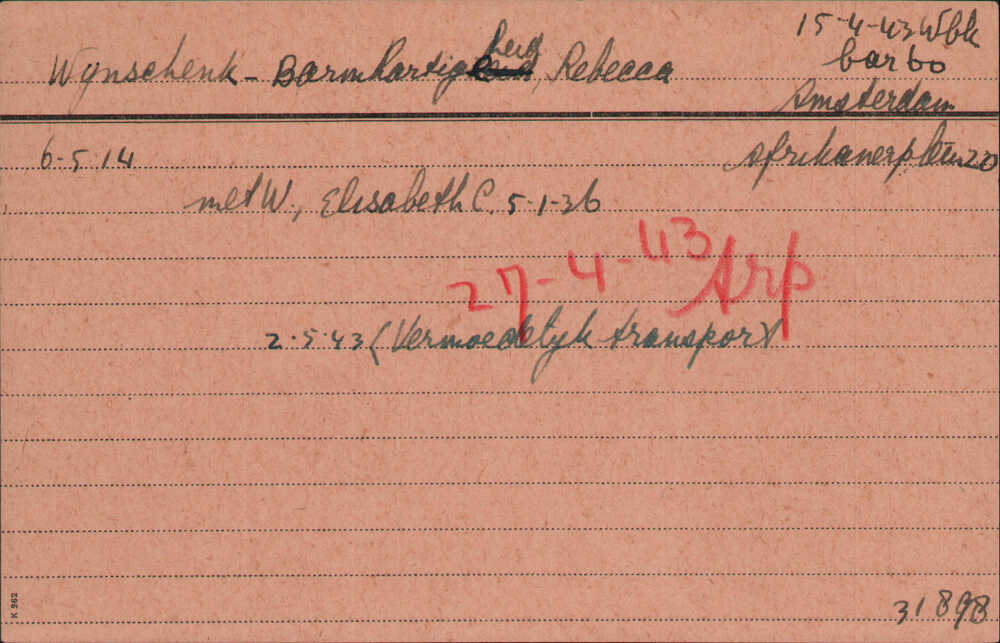 15-4-43 Wbk
barbo
Wynschenk - Barmhartigheid, Rebecca
Amsterdam
6-5-14
Afrikanerplein 20
met W., Elisabeth C. 5-1-36
27-4-43 Arp
2-5-43 (Vermoedelyk transport)
K 962
31898